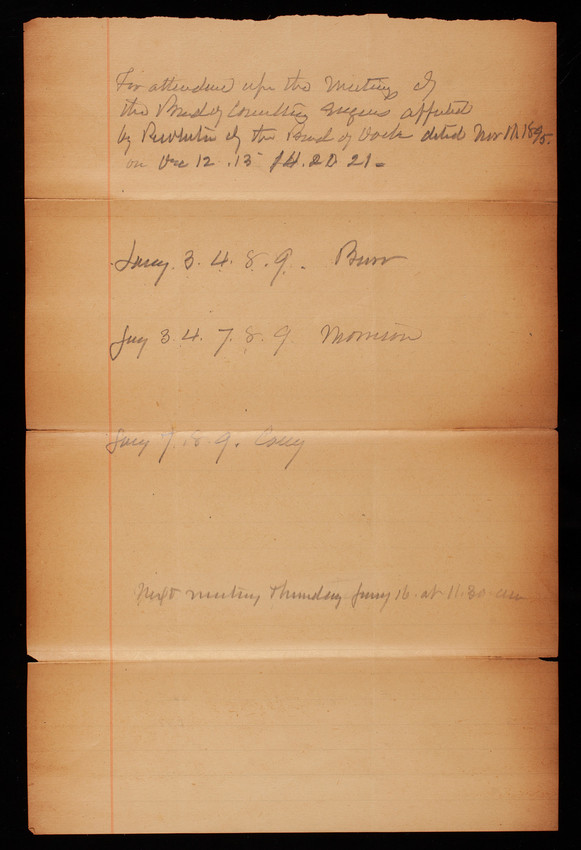 For attendance upon the Meetings of
the Board of Consulting Engineers appointed
by Resolution of the Board of Docks dated Nov 1895.
on Dec 12. 13 20 21 -
Jany. 3. 4. 8. 9. Burr
Jany 3. 4. 7. 8. 9 Morrison
Jany 7. 8. 9. Casey
Next meeting Thursday Jany 16. at 11.30 am